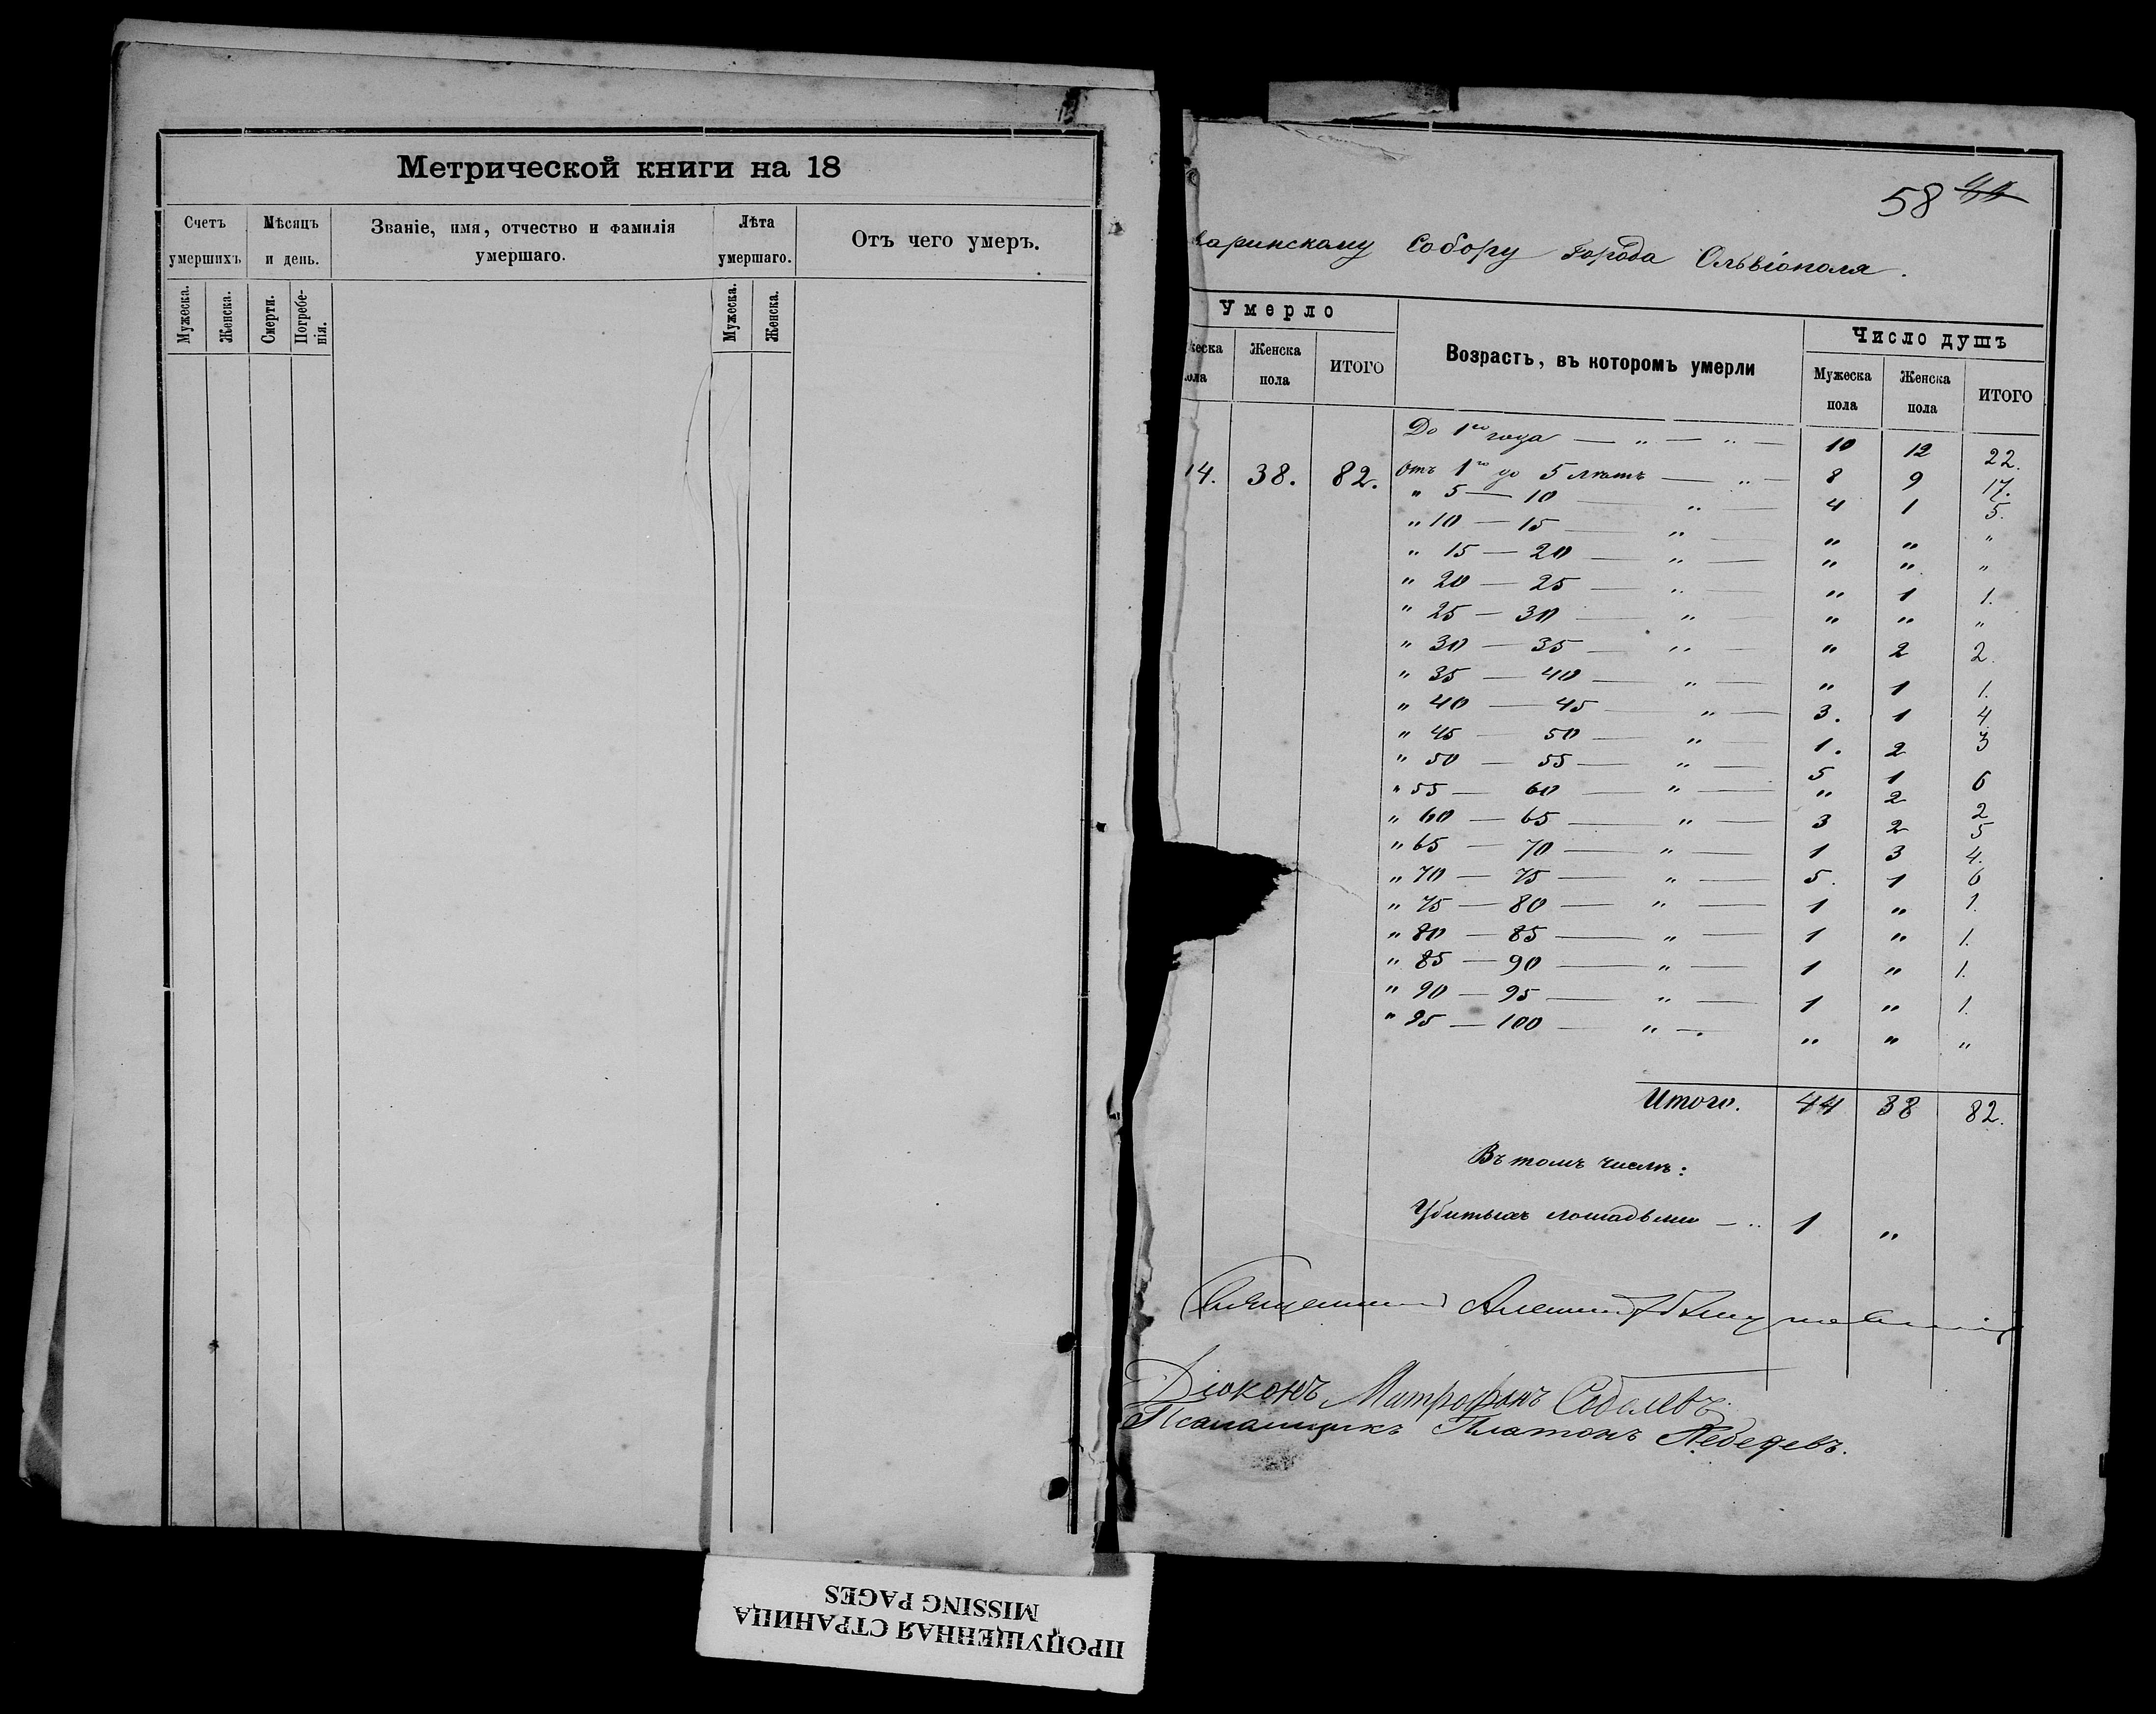 Метрической книги на 18
Счетъ умершихъ. Мѣсяцъ и день. Званіе, имя, отчество и фамилія умершаго. Лѣта умершаго. Отъ чего умеръ.
Мужеска. Женска. Смерти. Погребенія. Мужеска. Женска.
58 44
аринскому Собору города Ольвіополя.
Умерло Возрастъ, въ которомъ умерли Число душъ
жеска пола Женска пола ИТОГО Мужеска пола Женска пола ИТОГО
До 1го года — „ — „ — 10 12 22.
14. 38. 82. Отъ 1го до 5 лѣтъ — „ — 8 9 17.
„ 5 — 10 — „ — 4 1 5.
„ 10 — 15 — „ — „ „ „
„ 15 — 20 — „ — „ „ „
„ 20 — 25 — „ — „ 1 1.
„ 25 — 30 — „ — „ „ „
„ 30 — 35 — „ — „ 2 2.
„ 35 — 40 — „ — „ 1 1.
„ 40 — 45 — „ — 3. 1 4.
„ 45 — 50 — „ — 1. 2 3
„ 50 — 55 — „ — 5 1 6
„ 55 — 60 — „ — „ 2 2
„ 60 — 65 — „ — 3 2 5
„ 65 — 70 — „ — 1 3 4.
„ 70 — 75 — „ — 5. 1 6
„ 75 — 80 — „ — 1 „ 1.
„ 80 — 85 — „ — 1 „ 1.
„ 85 — 90 — „ — 1 „ 1.
„ 90 — 95 — „ — 1 „ 1.
„ 95 — 100 — „ — „ „ „
Итого. 44 38 82.
Въ томъ числѣ:
Убитыхъ лошадьми — „ 1 „
Священникъ
Діаконъ Митрофанъ Соболевъ
Псаломщикъ Платонъ Лебедевъ.
ПРОПУЩЕННАЯ СТРАНИЦА
MISSING PAGES